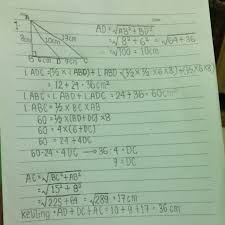 A
8cm
10cm
17cm
B 6cm D 9cm C
AD = √AB² + BD²
= √8² + 6² = √64 + 36
= √100 = 10cm
L ADC = (½ × L ABD) + L ABD
= 12 + 24 = 36cm²
L ABC = L ABD + L ADC = 24 + 36 = 60cm²
L ABC = ½ × BC × AB
60 = ½ × (BD + DC) × 8
60 = 4 × (6 + DC)
60 = 24 + 4DC
60 - 24 = 4DC → 36 = 4 DC
9 = DC
AC = √BC² + AB²
= √15² + 8²
= √225 + 64 = √289 = 17cm
Keliling = AD + DC + AC = 10 + 9 + 17 = 36cm